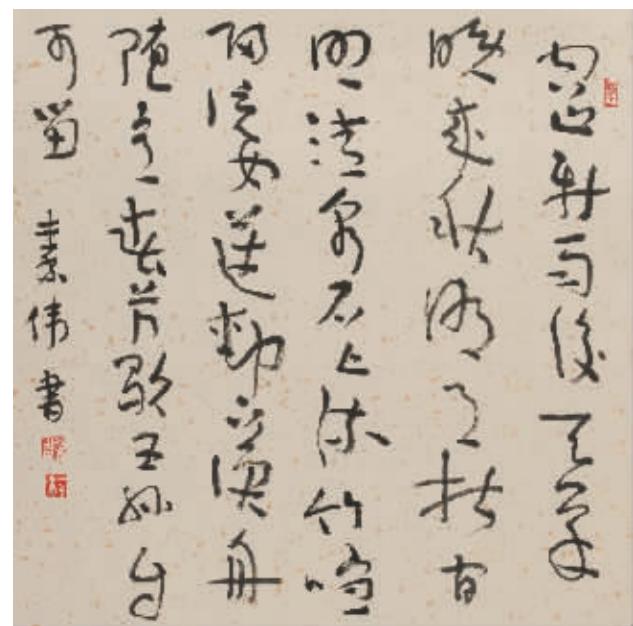 空山新雨後天氣
晚來秋明月松间
照清泉石上流竹喧
歸浣女蓮動下漁舟
隨意春芳歇王孫自
可留 素伟書